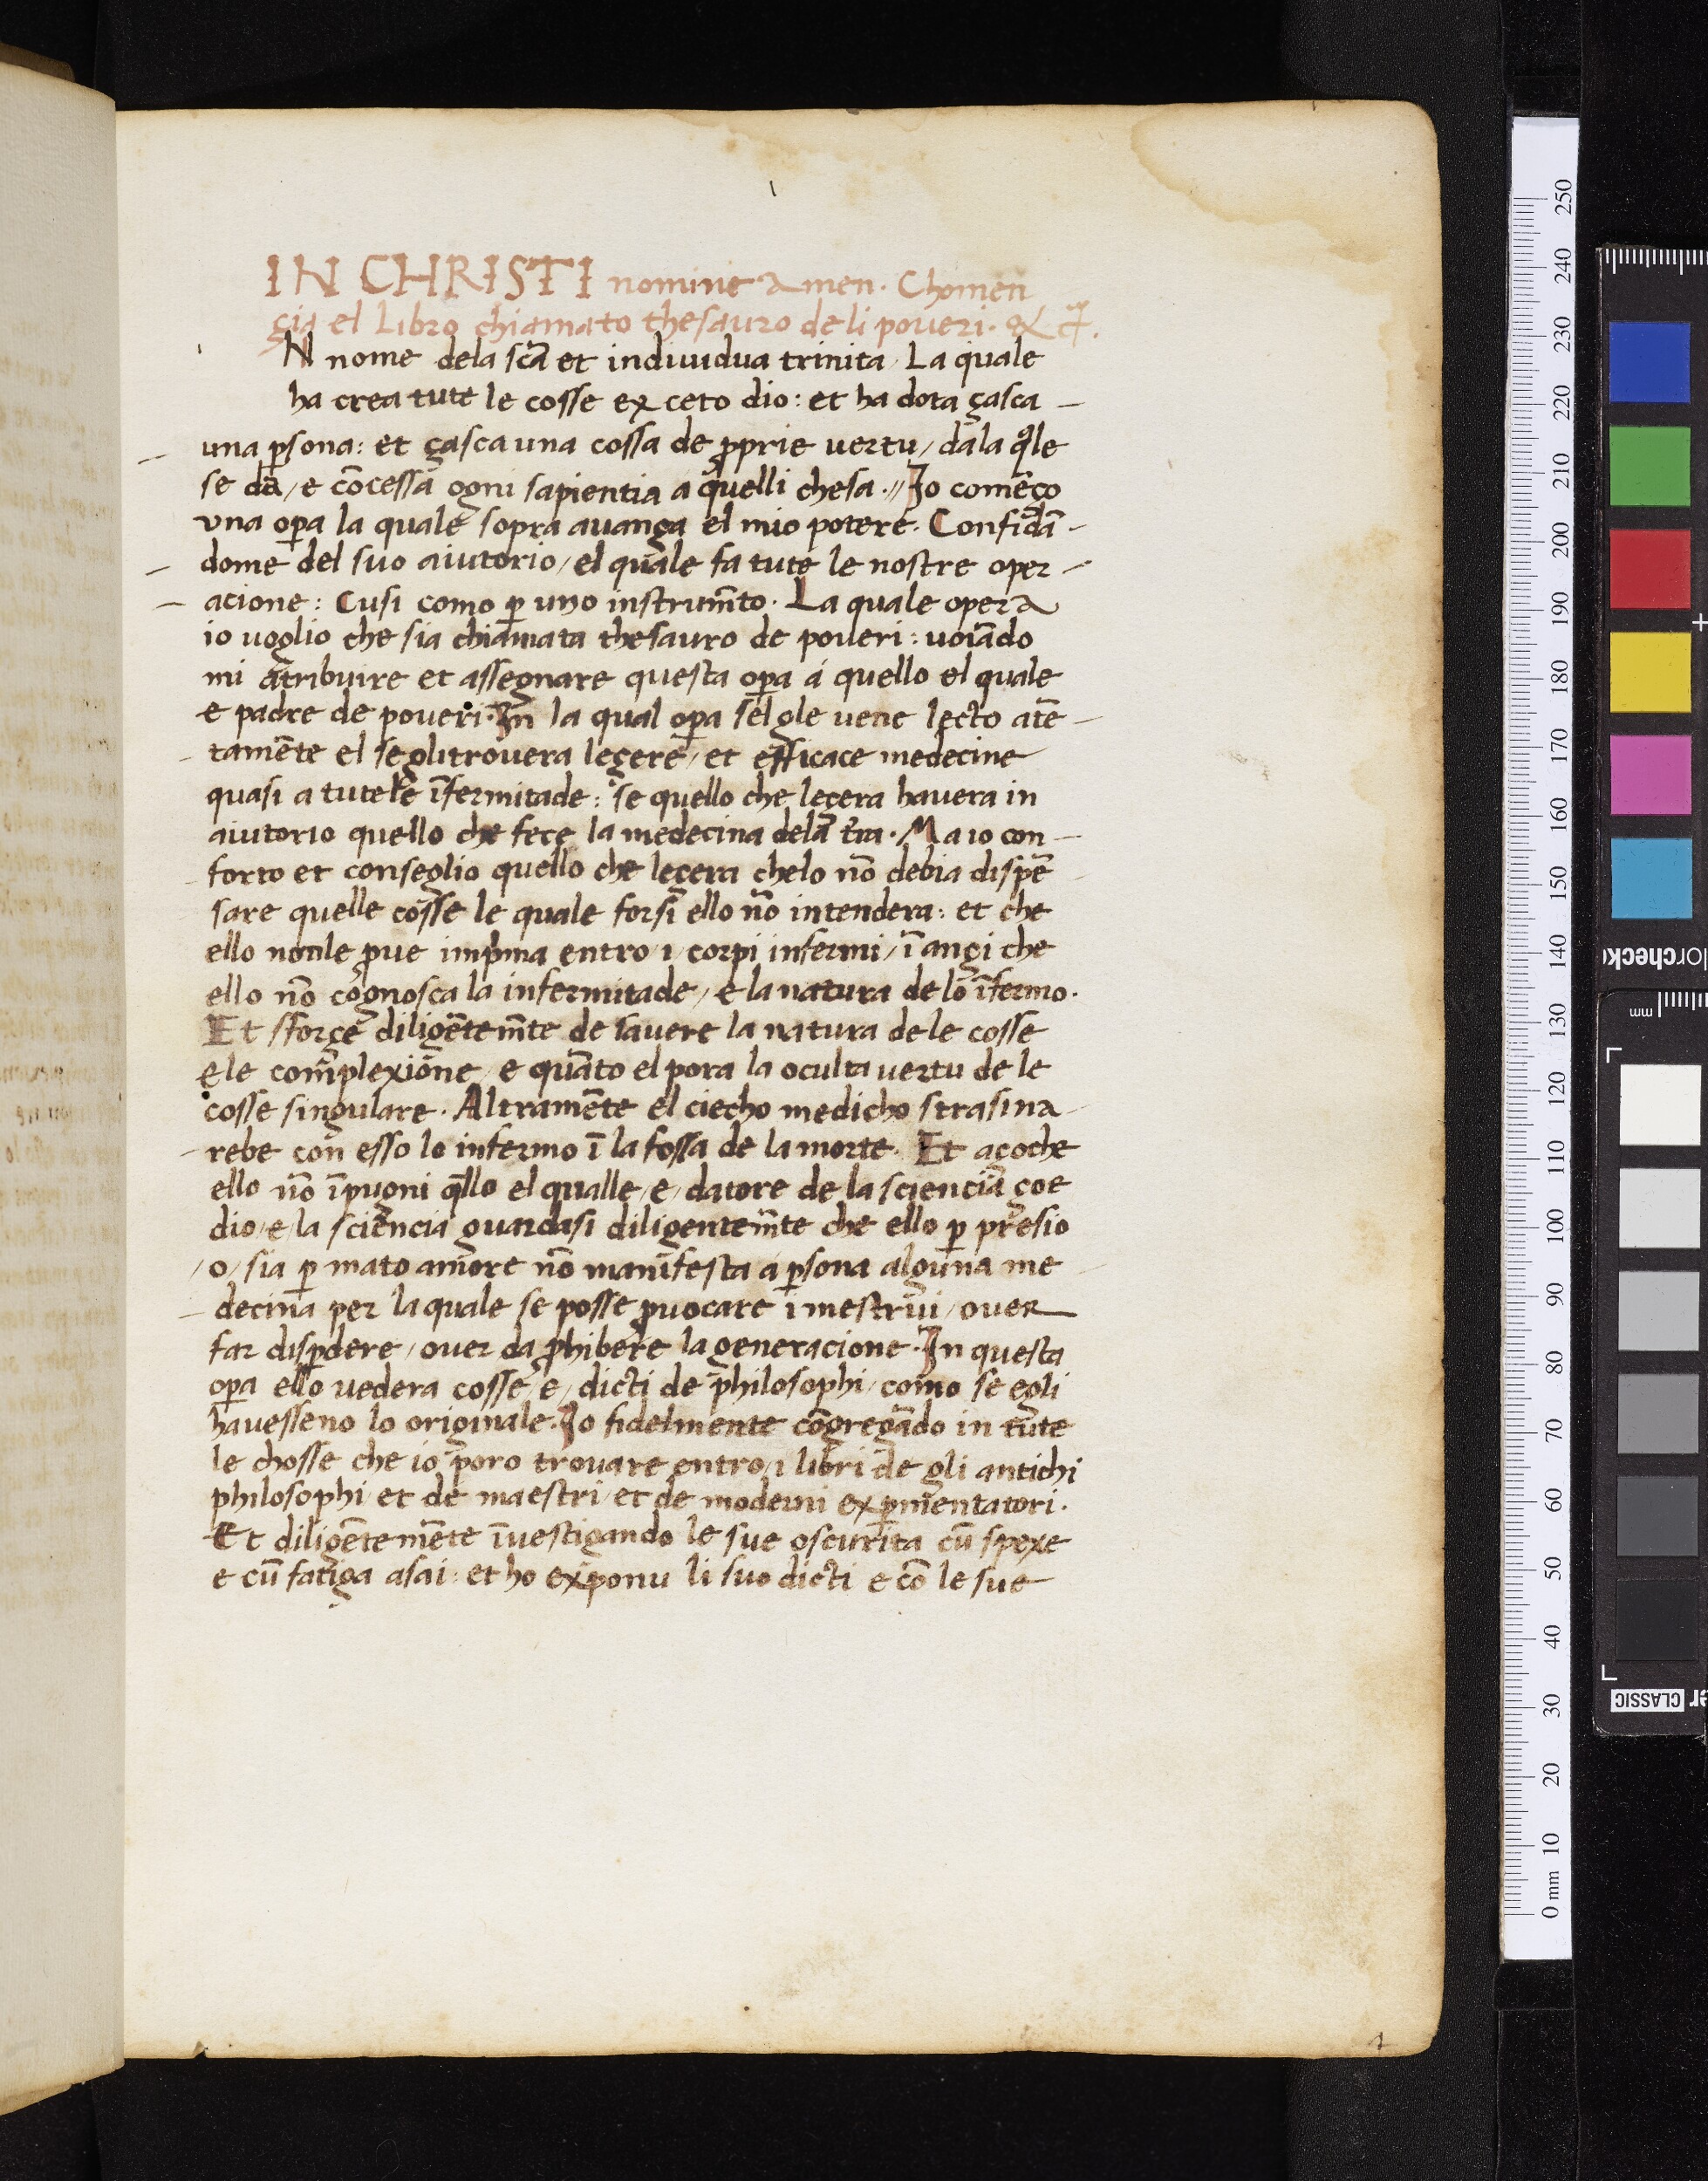 IN CHRISTI nomine Amen. Chomen
çia el Libro chiamato thesauro de li poueri. &
N nome dela scā et indiuidua trinita / La quale
ha crea tute le cosse ex ceto dio: et ha dota çasca –
una ꝑsona: et çasca una cossa de ꝓprie uertu / dala qᷓle
se dā / e cōcessa ogni sapientia a quelli chesa .// Jo comēço
vna oꝑa la quale sopra auança el mio potere. Confidā –
dome del suo aiutorio / el quale fa tute le nostre oper –
– acione: Cusi como ꝑ uno instrum̄to. La quale opera
io uoglio che sia chiamata thesauro de poueri: uoiādo
mi atribuire et assegnare questa oꝑa á quello el quale
e padre de poueri. In la qual oꝑa sel gle uene lecto atē –
– tamēte el se gli trouera leçere / et efficace medecine
quasi a tute le īfermitade: se quello che leçera hauera in
aiutorio quello che feçe la medecina dela t̄ra. Ma io con –
– forto et conseglio quello che leçera chelo nō debia dispē –
sare quelle cosse le quale forsi ello nō intendera: et che
ello nonle ꝓue imp̄ma entro / i / corpi infermi / ī ançi che
ello nō cognosca la infermitade / e la natura de lo īfermo.
Et sforçe diligētem̄te de sauere la natura de le cosse
e le complexione / e quāto el pora la oculta uertu de le
cosse singulare. Altramēte el ciecho medicho strasina –
– rebe con esso lo infermo ī la fossa de la morte. Et açoche
ello nō īpugni q̄llo el qualle / e / datore de la sciencia çoe
dio / e / la sciencia guardasi diligentem̄te che ello ꝑ presio
/ o / sia ꝑ mato amore nō manifesta á ꝑsona alguna me –
– decina per la quale se posse ꝓuocare i mestrui / ouer
far disꝑdere / ouer da ꝓhibere la generacione. In questa
oꝑa ello vedera cosse / e / dicti de philosophi / como se egli
hauesseno lo originale. Jo fidelmente cōgregādo in tute
le chosse che io poro trouare entro / i libri de gli antichi
philosophi / et de maestri / et de moderni exꝑimentatori.
Et diligētemēte īuestigando le sue oscurita cū spexe
e cū fatiga asai: et ho exponu li suo dicti e cō le sue
1